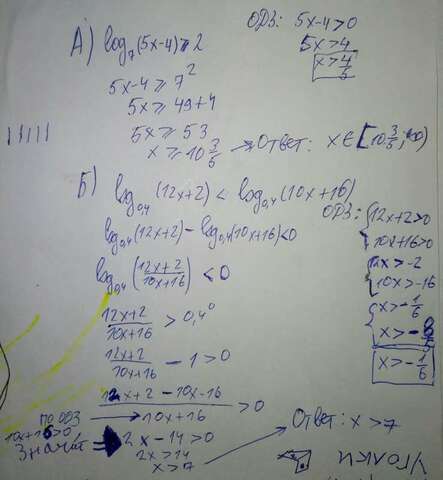 А) log₇(5x-4)≥2
ОДЗ: 5x-4>0
5x>4
x>4/5
5x-4≥7²
5x≥49+4
5x≥53
x≥10 3/5 → Ответ: x∈[10 3/5; ∞)
Б) log₀,₄(12x+2)<log₀,₄(10x+16)
ОДЗ: {12x+2>0
10x+16>0
{12x>-2
10x>-16
{x>-1/6
x>-8/5
x>-1/6
log₀,₄(12x+2)-log₀,₄(10x+16)<0
log₀,₄((12x+2)/(10x+16))<0
(12x+2)/(10x+16)>0,4⁰
(12x+2)/(10x+16)-1>0
(12x+2-10x-16)/(10x+16)>0
по ОДЗ
10x+16>0
Значит ⇒ 2x-14>0
2x>14
x>7
Ответ: x>7
УГОЛКИ